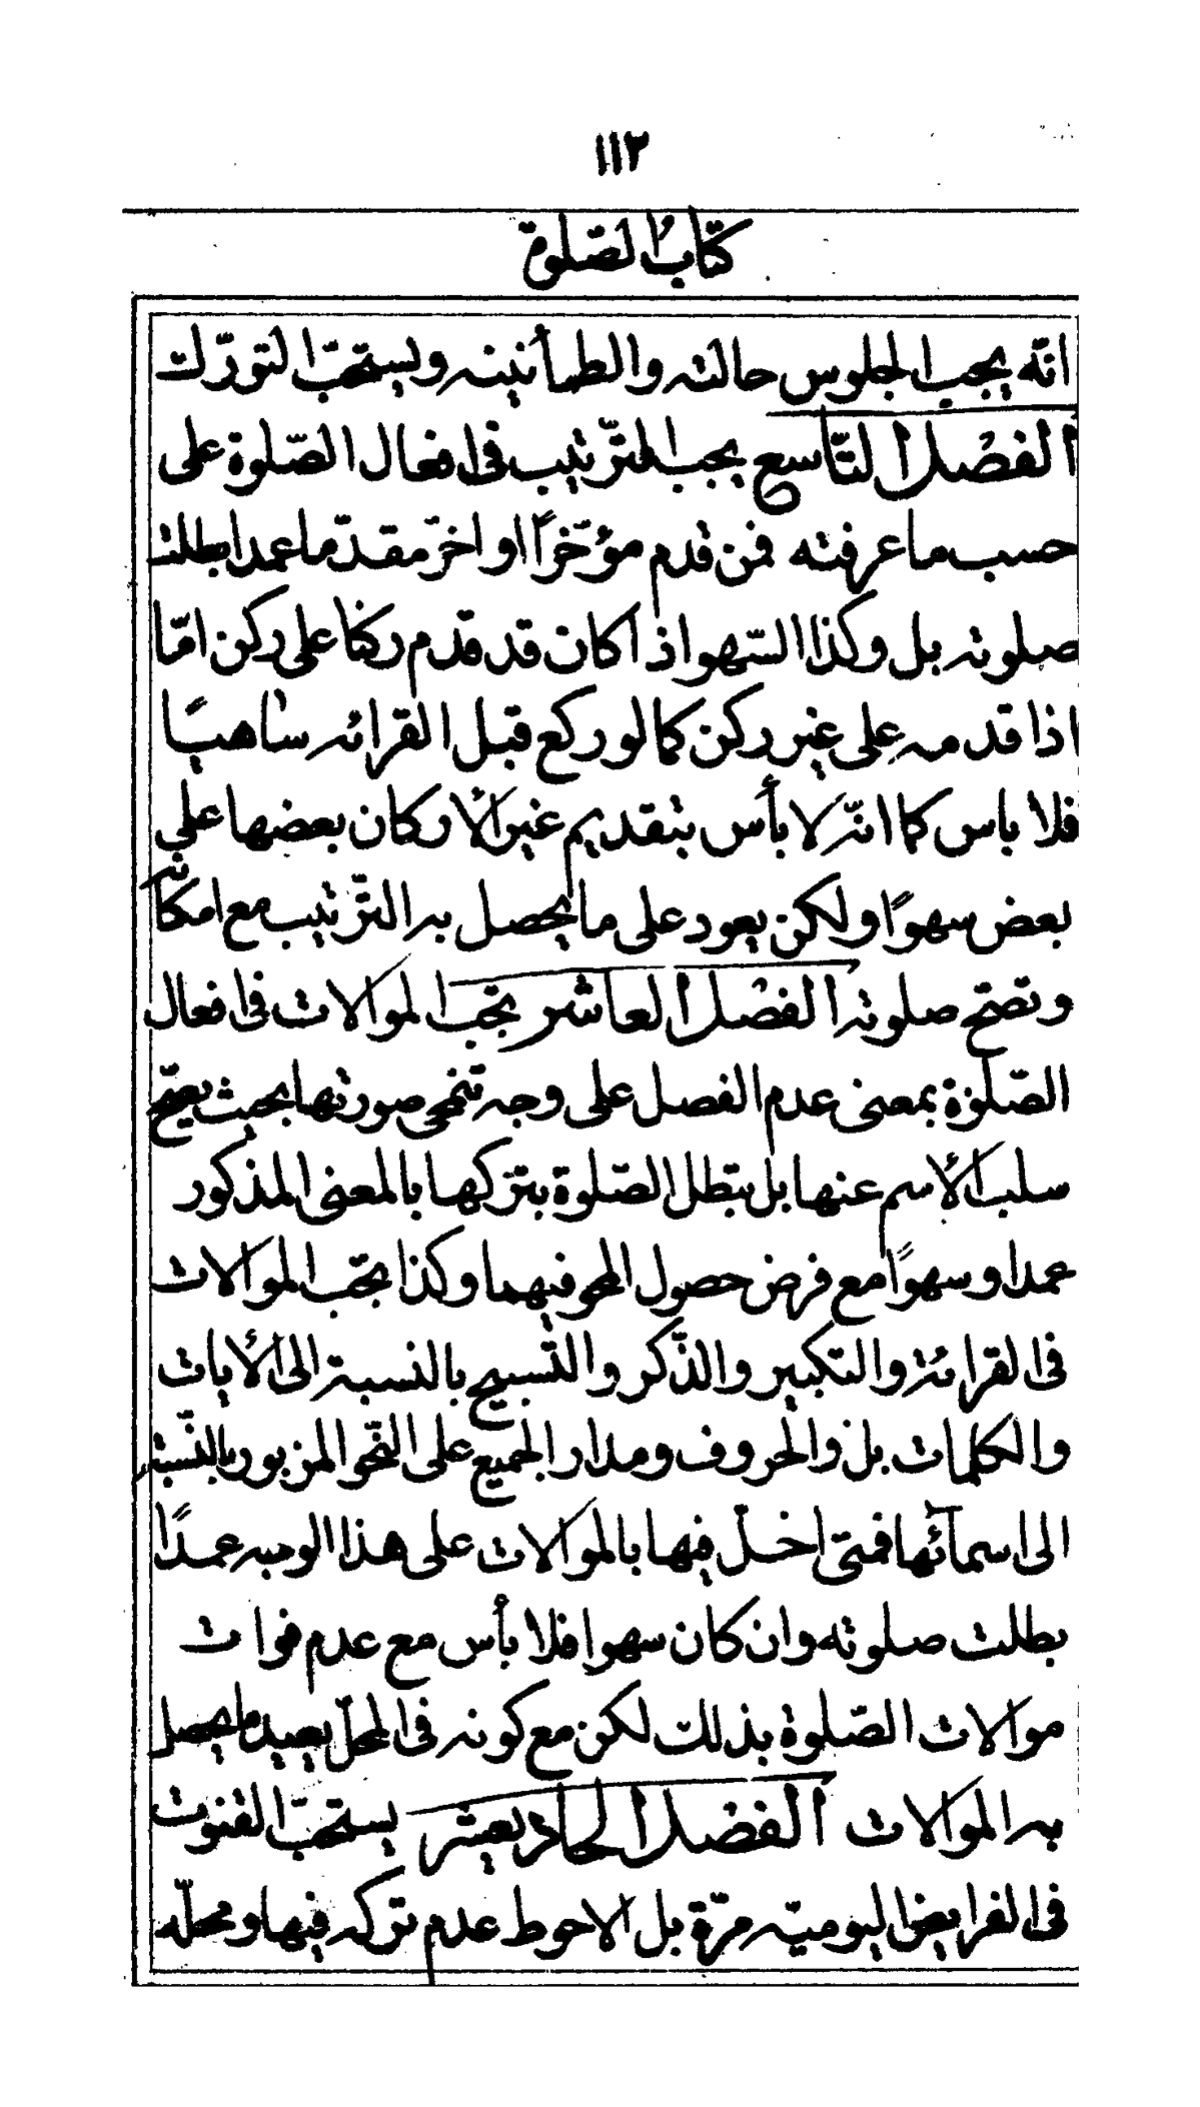 ١١٢
كتاب الصّلوة
انّه يجب الجلوس حالته والطمأنينه ويستحبّ التورّك
الفصل التّاسع يجب الترّتيب فى افعال الصّلوة على
حسب ما عرفته فمن قدم مؤخّرًا او اخرّ مقدّما عمدا بطلت
صلوته بل وكذا السّهو اذا كان قد قدم ركنا على ركن امّا
اذا قدمه على غير ركن كما لو ركع قبل القرائه ساهيًا
فلا باس كما انّه لا بأس بتقديم غير الأركان بعضها على
بعض سهوًا ولكن يعود على ما يحصل به الترّتيب مع امكانه
وتصّح صلوته الفصل العاشر تجب الموالات فى افعال
الصّلوة بمعنى عدم الفصل على وجه تنمحى صورتها بحيث يصّح
سلب الأسم عنها بل تبطل الصّلوة بتركها بالمعنى المذكور
عمدا وسهوًا مع فرض حصول المحو فيهما وكذا تجب الموالات
فى القرائة والتكبير والذّكر والتّسبيح بالنسبة الى الأيات
والكلمات بل والحروف ومدار الجميع على النّحو المزبور بالنّسبة
الى اسمآئها فمتى اخلّ فيها بالموالات على هذا الوجه عمدًا
بطلت صلوته وان كان سهوا فلا بأس مع عدم فوات
موالات الصّلوة بذلك لكن مع كونه فى المحلّ يعيد ما يحصل
به الموالات الفصل الحاد يعشر يستحبّ القنوت
فى الفرايض اليوميّه مرّة بل الاحوط عدم تركه فيها ومحلّه